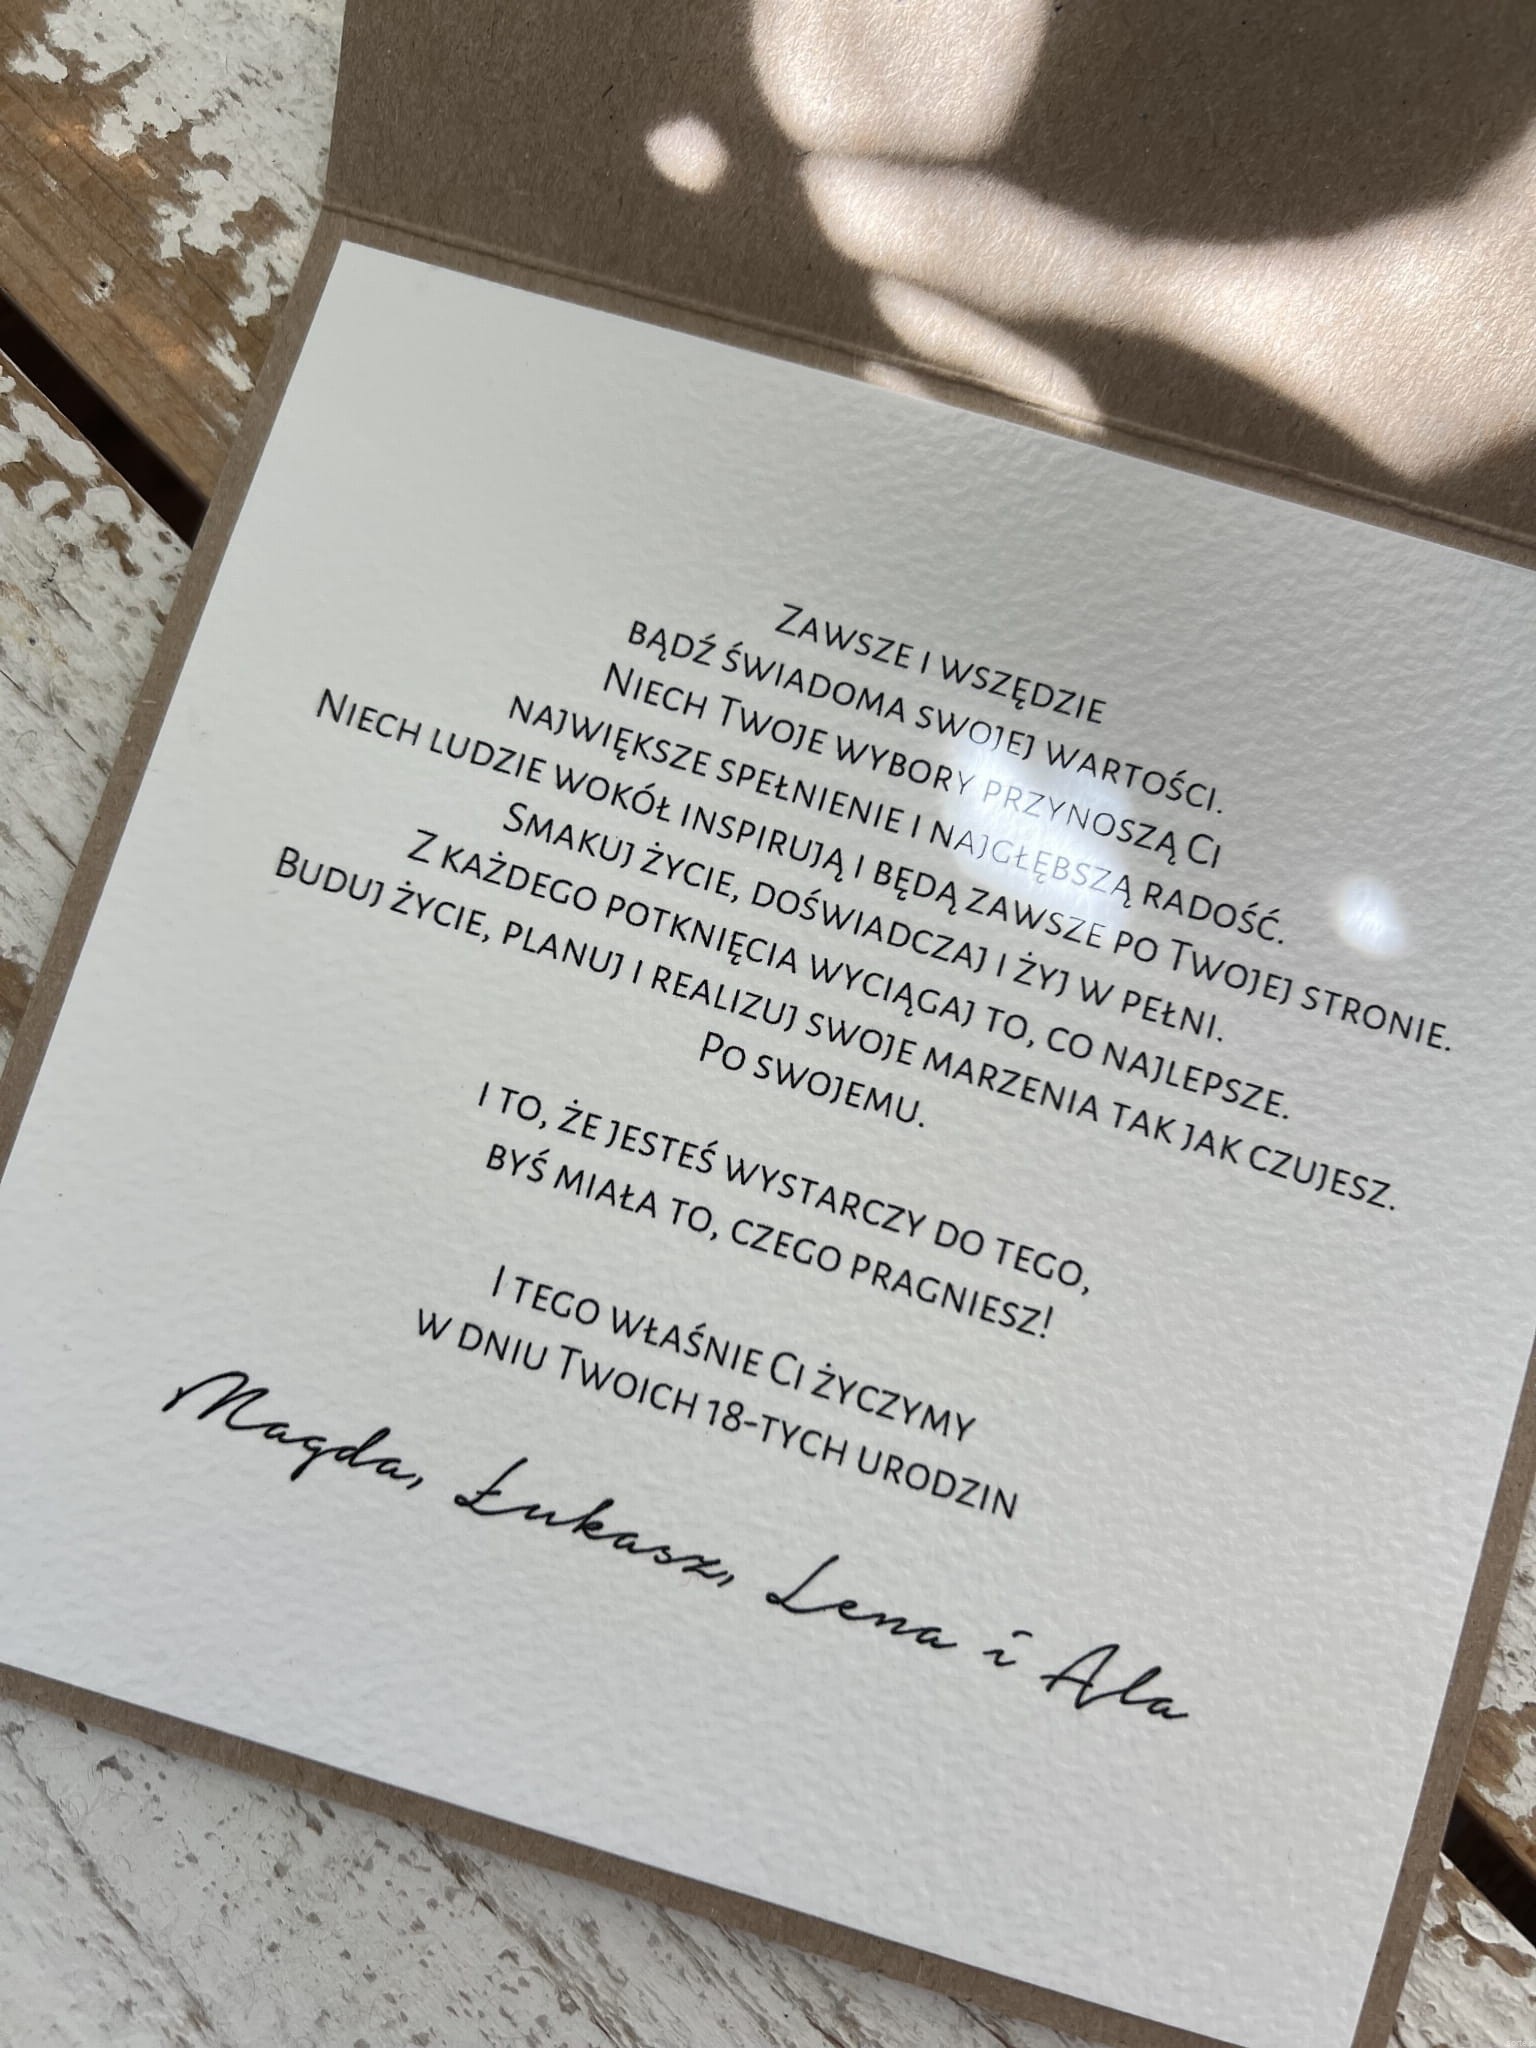 Zawsze i wszędzie
bądź świadoma swojej wartości.
Niech Twoje wybory przynoszą Ci
największe spełnienie i najgłębszą radość.
Niech ludzie wokół inspirują i będą zawsze po Twojej stronie.
Smakuj życie, doświadczaj i żyj w pełni.
Z każdego potknięcia wyciągaj to, co najlepsze.
Buduj życie, planuj i realizuj swoje marzenia tak jak czujesz.
Po swojemu.
i to, że jesteś wystarczy do tego,
byś miała to, czego pragniesz!
I tego właśnie Ci życzymy
w dniu Twoich 18-tych urodzin
Magda, Łukasz, Lena i Ala